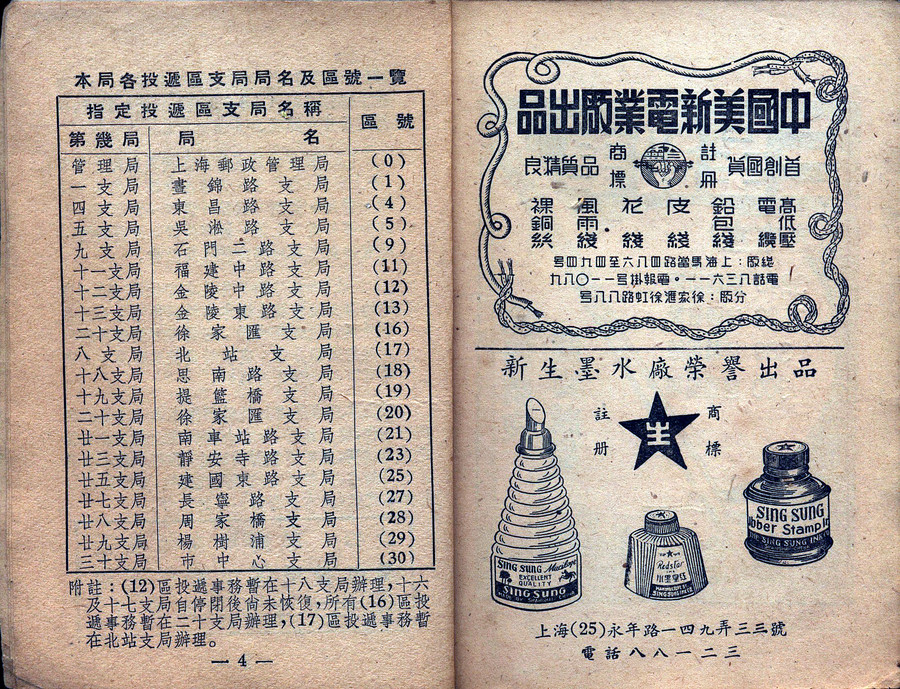 本局各投遞區支局局名及區號一覽
指定投遞區支局名稱 區號
第幾局 局名
管理局 上海郵政管理局 (0)
一支局 晝錦路支局 (1)
四支局 東昌路支局 (4)
五支局 吳淞路支局 (5)
九支局 石門二路支局 (9)
十一支局 福建中路支局 (11)
十二支局 金陵中路支局 (12)
十三支局 金陵東路支局 (13)
二十支局 徐家匯支局 (16)
八支局 北站支局 (17)
十八支局 思南路支局 (18)
十九支局 提籃橋支局 (19)
二十支局 徐家匯支局 (20)
廿一支局 南車站路支局 (21)
廿三支局 靜安寺路支局 (23)
廿五支局 建國東路支局 (25)
廿七支局 長寧路支局 (27)
廿八支局 周家橋支局 (28)
廿九支局 楊樹浦支局 (29)
三十支局 市中心支局 (30)
附註：(12)區投遞事務暫在十八支局辦理，十六
及十七支局自停閉後尙未恢復，所有(16)區投
遞事務暫在二十支局辦理，(17)區投遞事務暫
在北站支局辦理。
— 4 —
中國美新電業厰出品
首創國貨 註册商標 品質精良
高低壓電纜
鉛包綫
皮綫
花綫
風雨綫
裸銅絲
總厰：上海馬當路四八六至四九四號
電話八三六一一·電報掛號一一〇八九
分厰：徐家滙徐虹路八八號
新生墨水廠榮譽出品
商標
註册
生
SING SUNG Mucilage
EXCELLENT
QUALITY
SING SUNG
Redstar
SING SUNG
Rubber Stamp Ink
THE SING SUNG INK
上海(25)永年路一四九弄三三號
電話八八一二三